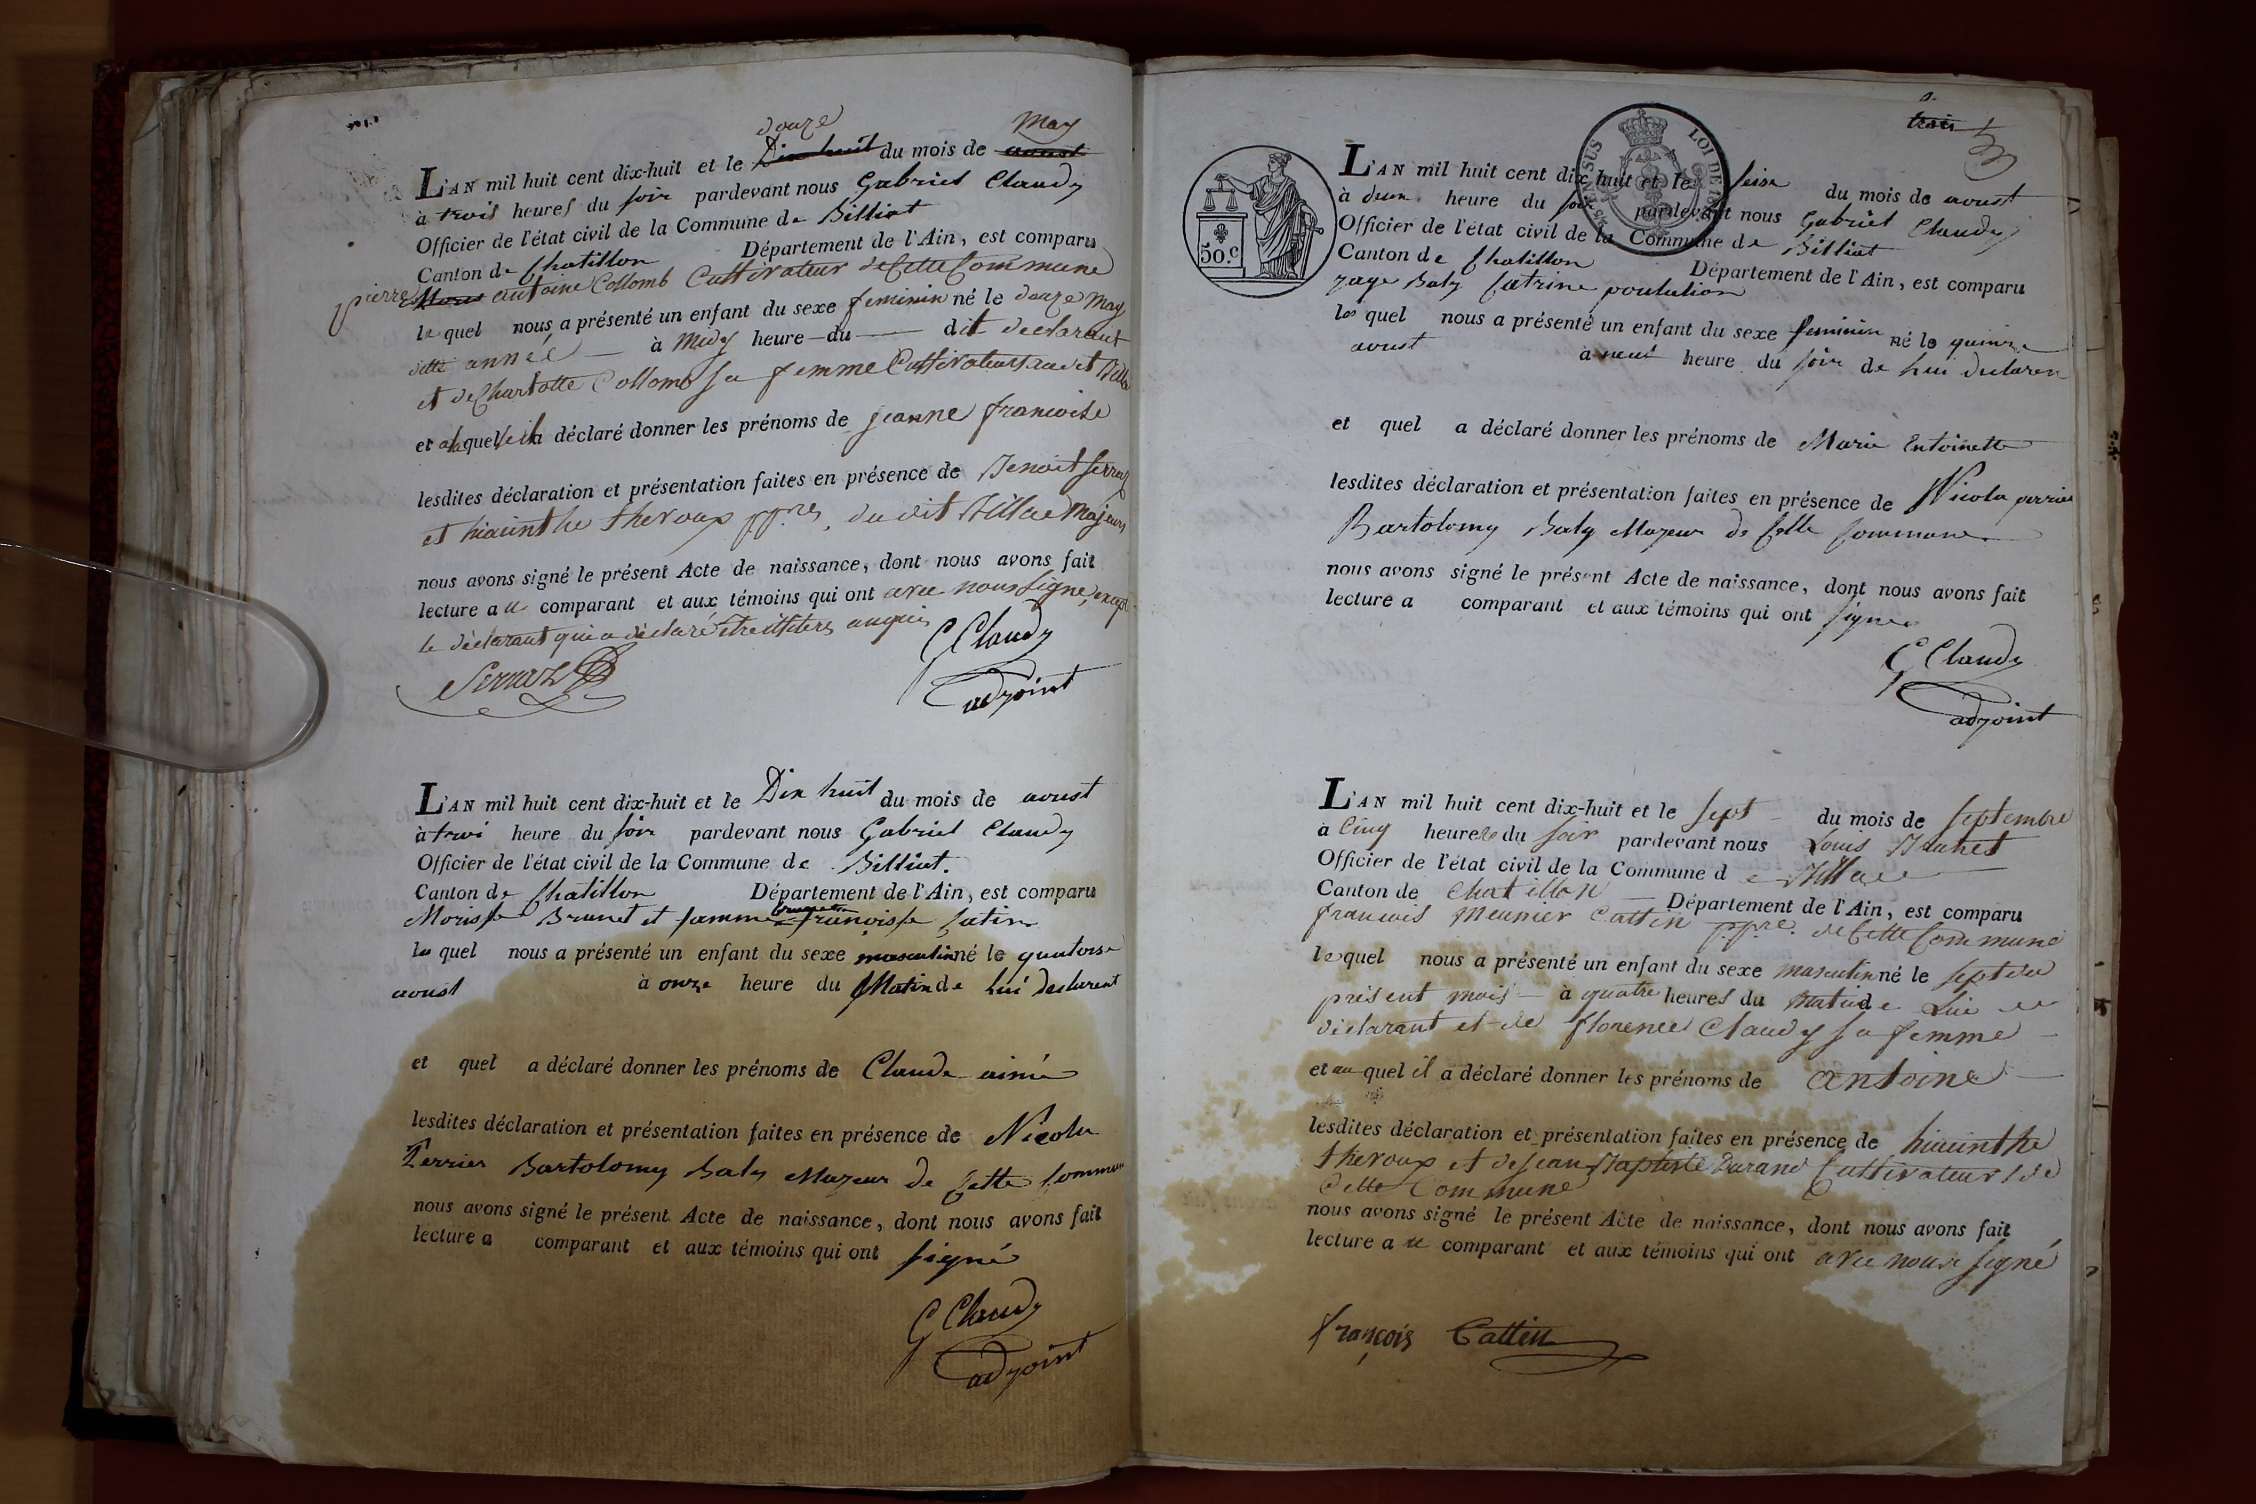 douze May
L'AN mil huit cent dix-huit et le Dix huit du mois de aoust
à trois heures du soir pardevant nous Gabriel Claudy
Officier de l'état civil de la Commune de Billiat
Canton de Chatillon Département de l'Ain, est comparu
pierre antoine Collomb Cultivateur de Cette Commune
le quel nous a présenté un enfant du sexe feminin né le douze may
ditte année à Midy heure du dit declarant
et de Charlotte Collomb sa femme Cultivateurs
et a déclaré donner les prénoms de jeanne francoise
lesdites déclaration et présentation faites en présence de Benoit Serraz
et hiacinthe theroux ppres du dit Billiat Majeurs
nous avons signé le présent Acte de naissance, dont nous avons fait
lecture au comparant et aux témoins qui ont avec nous signé, excepté
le déclarant qui a déclaré
G Claudy
Serraz
adjoint
L'AN mil huit cent dix-huit et le Dix huit du mois de aoust
à troi heure du soir pardevant nous Gabriel Claudy
Officier de l'état civil de la Commune de Billiat.
Canton de Chatillon Département de l'Ain, est comparu
Morisse Brunet et famme françoisse Catin
les quel nous a présenté un enfant du sexe masculin né le quatorse
aoust à onze heure du Matin de lui declarent
et quel a déclaré donner les prénoms de Claude aimé
lesdites déclaration et présentation faites en présence de Nicola
Perrier Bartolomy Baly Majeur de Cette Commune
nous avons signé le présent Acte de naissance, dont nous avons fait
lecture a comparant et aux témoins qui ont signé
G Claudy
adjoint
trois
3
50.c
L'AN mil huit cent dix-huit et le seise du mois de aoust
à deux heure du soir pardevant nous Gabriel Claudy
Officier de l'état civil de la Commune de Billiat
Canton de Chatillon Département de l'Ain, est comparu
Baly Catrine
les quel nous a présenté un enfant du sexe feminin né le quinze
aoust à neuf heure du soir de lui declaren
et quel a déclaré donner les prénoms de Marie Entoinette
lesdites déclaration et présentation faites en présence de Nicola perrier
Bartolomy Baly Majeur de Cette Commune
nous avons signé le présent Acte de naissance, dont nous avons fait
lecture a comparant et aux témoins qui ont signé
G Claudy
adjoint
L'AN mil huit cent dix-huit et le sept du mois de septembre
à Cinq heures du soir pardevant nous Louis Brunet
Officier de l'état civil de la Commune de
Canton de Chatillon Département de l'Ain, est comparu
francois Meunier Cattin ppre de Cette Commune
lequel nous a présenté un enfant du sexe masculin né le sept du
présent mois à quatre heures du matin de Lui
déclarant et de florence Claudy sa femme
et au quel il a déclaré donner les prénoms de antoine
lesdites déclaration et présentation faites en présence de hiacinthe
theroux et de jean Baptiste Durand Cultivateurs de
Cette Commune
nous avons signé le présent Acte de naissance, dont nous avons fait
lecture au comparant et aux témoins qui ont avec nous signé
françois Cattin